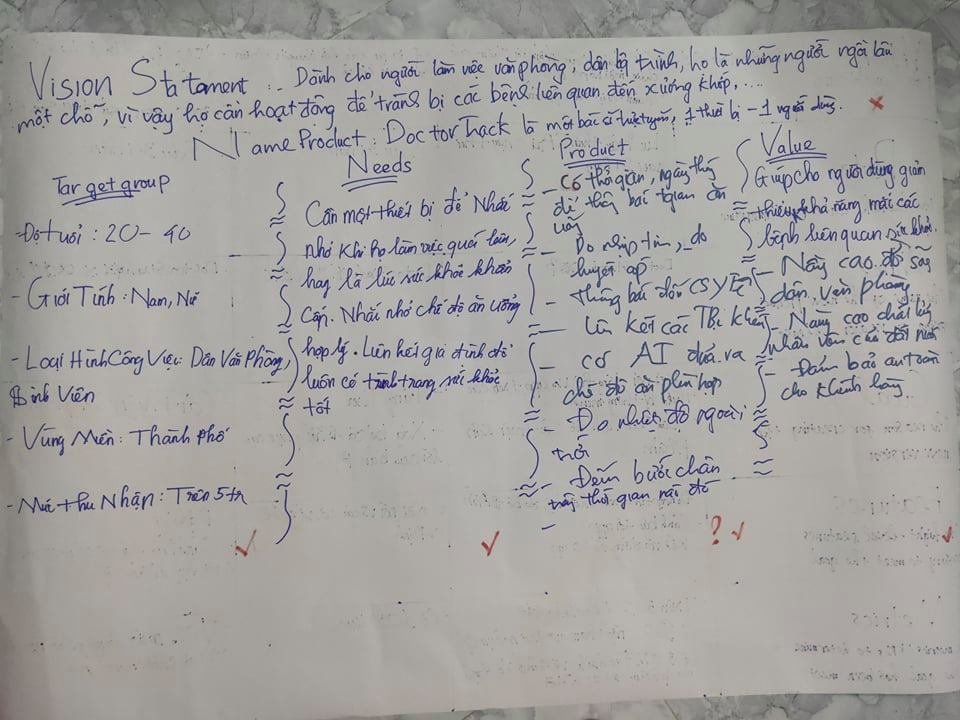 Vision Statament: Dành cho người làm việc văn phòng, dân lập trình, họ là những người ngồi lâu
một chỗ, vì vậy họ cần hoạt động để tránh bị các bệnh liên quan đến xương khớp,....
Name Product: DoctorTrack là một bác sĩ trực tuyến, 1 thiết bị - 1 người dùng.
Target group
- Độ tuổi: 20 - 40
- Giới Tính: Nam, Nữ
- Loại Hình Công Việc: Dân Văn Phòng,
Sinh Viên
- Vùng Miền: Thành phố
- Mức thu Nhập: Trên 5tr
Needs
Cần một thiết bị để Nhắc
nhở khi họ làm việc quá lâu,
hay là lúc sức khoẻ khẩn
Cấp. Nhắc nhở chế độ ăn uống
hợp lý. Liên kết gia đình để
luôn có tình trạng sức khỏe
tốt
Product
- Có thời gian, ngày tháng
để thông báo tgian ăn
uống
- Đo nhịp tim, đo
huyết áp
- Thông báo đến CSYT
- Liên kết các Tbị khác
- Có AI đưa ra
chế độ ăn phù hợp
- Đo nhiệt độ ngoài
trời
- Đếm bước chân
trong thời gian nào đó
-
?
Value
Giúp cho người dùng giảm
thiểu khả năng mắc các
bệnh liên quan sức khỏe.
- Nâng cao đời sống
dân văn phòng
- Nâng cao chất lượng
nhân văn của đất nước
- Đảm bảo an toàn
cho khách hàng